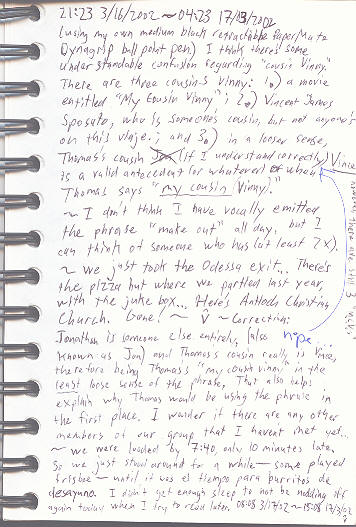 21:23 3/16/2002 ~ 04:23 17/13/2002
(using my own medium black retractable PaperMate
Dynagrip ball point pen) I think there's some
understandable confusion regarding "cousin Vinny."
There are three cousins Vinny: 1.) a movie
entitled "My Cousin Vinny"; 2.) Vincent James
Sposato, who is someone's cousin, but not anyone's
on this viaje.; and 3.) in a looser sense,
Thomas's cousin Jon (if I understand correctly) Vince
is a valid antecedent for whatever of when
Thomas says "my cousin Vinny."
~ I don't think I have vocally emitted
the phrase "make out" all day, but I
can think of someone who has (at least 2x).
~ we just took the Odessa exit... There's
the pizza hut where we partied last year,
with the juke box... Here's Antioch Christian
Church. Gone! ~ V ~ Correction:
Jonathan is someone else entirely, (also nope...
known as Jon) and Thomas's cousin really is Vince,
therefore being Thomas's "my cousin vinny" in the
least loose sense of the phrase. That also helps
explain why Thomas would be using the phrase in
the first place. I wonder if there are any other
members of our group that I haven't met yet...
~ we were loaded by 7:40, only 10 minutes late,
so we just stood around for a while — some played
frisbee — until it was el tiempo para burritos de
desayuno. I didn't get enough sleep to not be nodding off
again today when I try to read later. 05:08 3/17/02 ~ 15:08 17/3/02